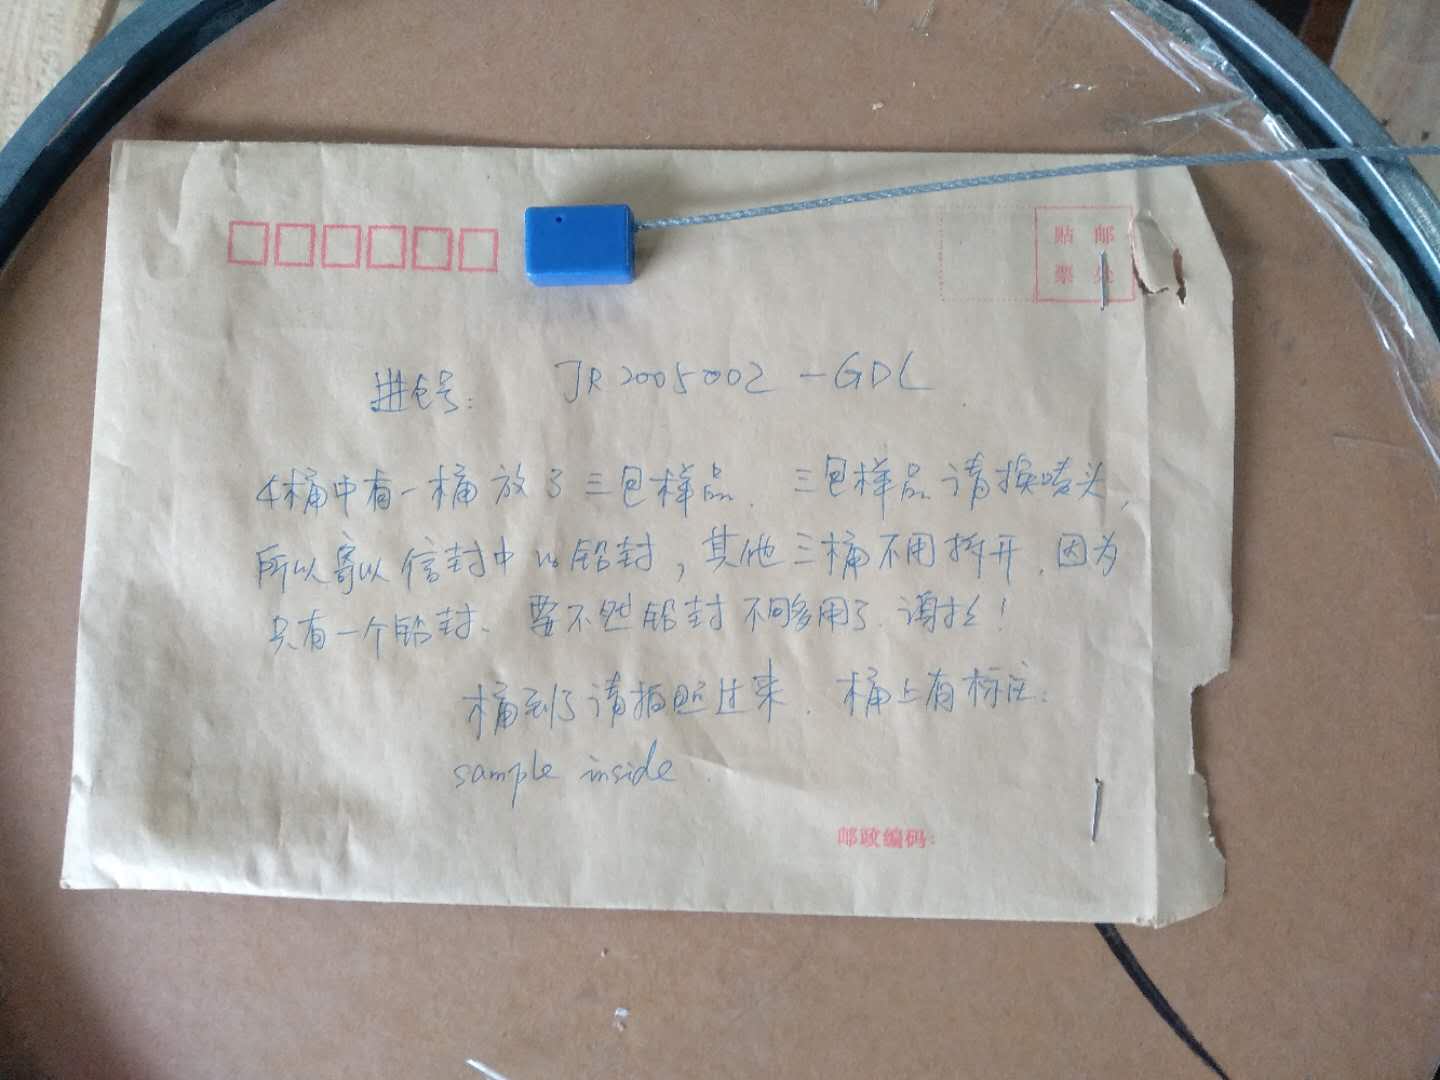 贴 邮
票 处
进仓号: JR2005002-GDL
4桶中有一桶放了三包样品. 三包样品请换唛头,
所以寄以信封中以铅封, 其他三桶不用拆开. 因为
只有一个铅封、要不然铅封不够用了. 谢谢!
桶到了请拍照过来. 桶上有标注:
sample inside.
邮政编码: